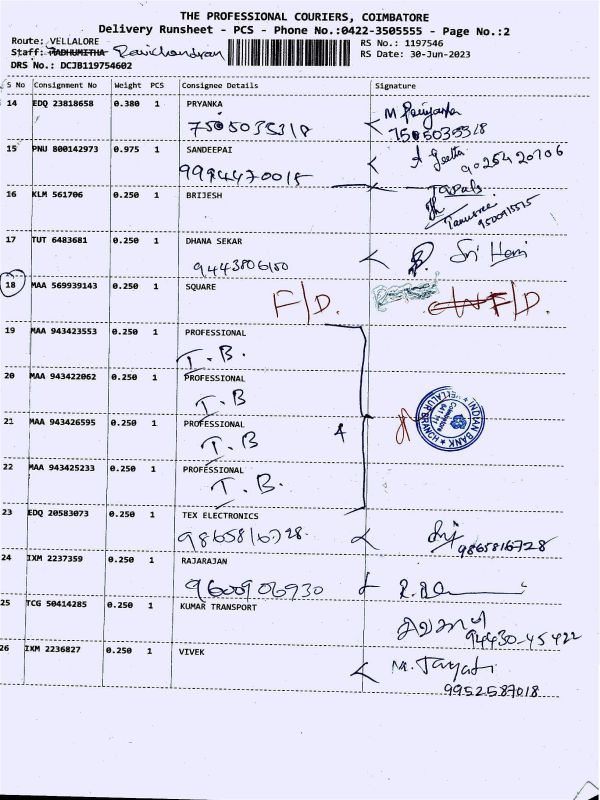 THE PROFESSIONAL COURIERS, COIMBATORE
Delivery Runsheet - PCS - Phone No.:0422-3505555 - Page No.:2
Route: VELLALORE
RS No.: 1197546
Staff: RADHUMITHA Ravichandran
RS Date: 30-Jun-2023
DRS No.: DCJB119754602
S No Consignment No Weight PCS Consignee Details Signature
14 EDQ 23818658 0.380 1 PRYANKA M Priyanka
7505035318 7505035318
15 PNU 800142973 0.975 1 SANDEEPAI A Geetha
9994470015 9025420706
16 KLM 561706 0.250 1 BRIJESH
9500915515
17 TUT 6483681 0.250 1 DHANA SEKAR Sri Hari
9443806180
18 MAA 569939143 0.250 1 SQUARE
F/D. F/D.
19 MAA 943423553 0.250 1 PROFESSIONAL
I.B.
20 MAA 943422062 0.250 1 PROFESSIONAL
I.B
21 MAA 943426595 0.250 1 PROFESSIONAL
I.B 4
INDIAN BANK
VELLALUR BRANCH
22 MAA 943425233 0.250 1 PROFESSIONAL
I.B.
23 EDQ 20583073 0.250 1 TEX ELECTRONICS
9865816728. 9865816728
24 IXM 2237359 0.250 1 RAJARAJAN
9600906930
25 TCG 50414285 0.250 1 KUMAR TRANSPORT
94430-45422
26 IXM 2236827 0.250 1 VIVEK M. Jayati
9952587018